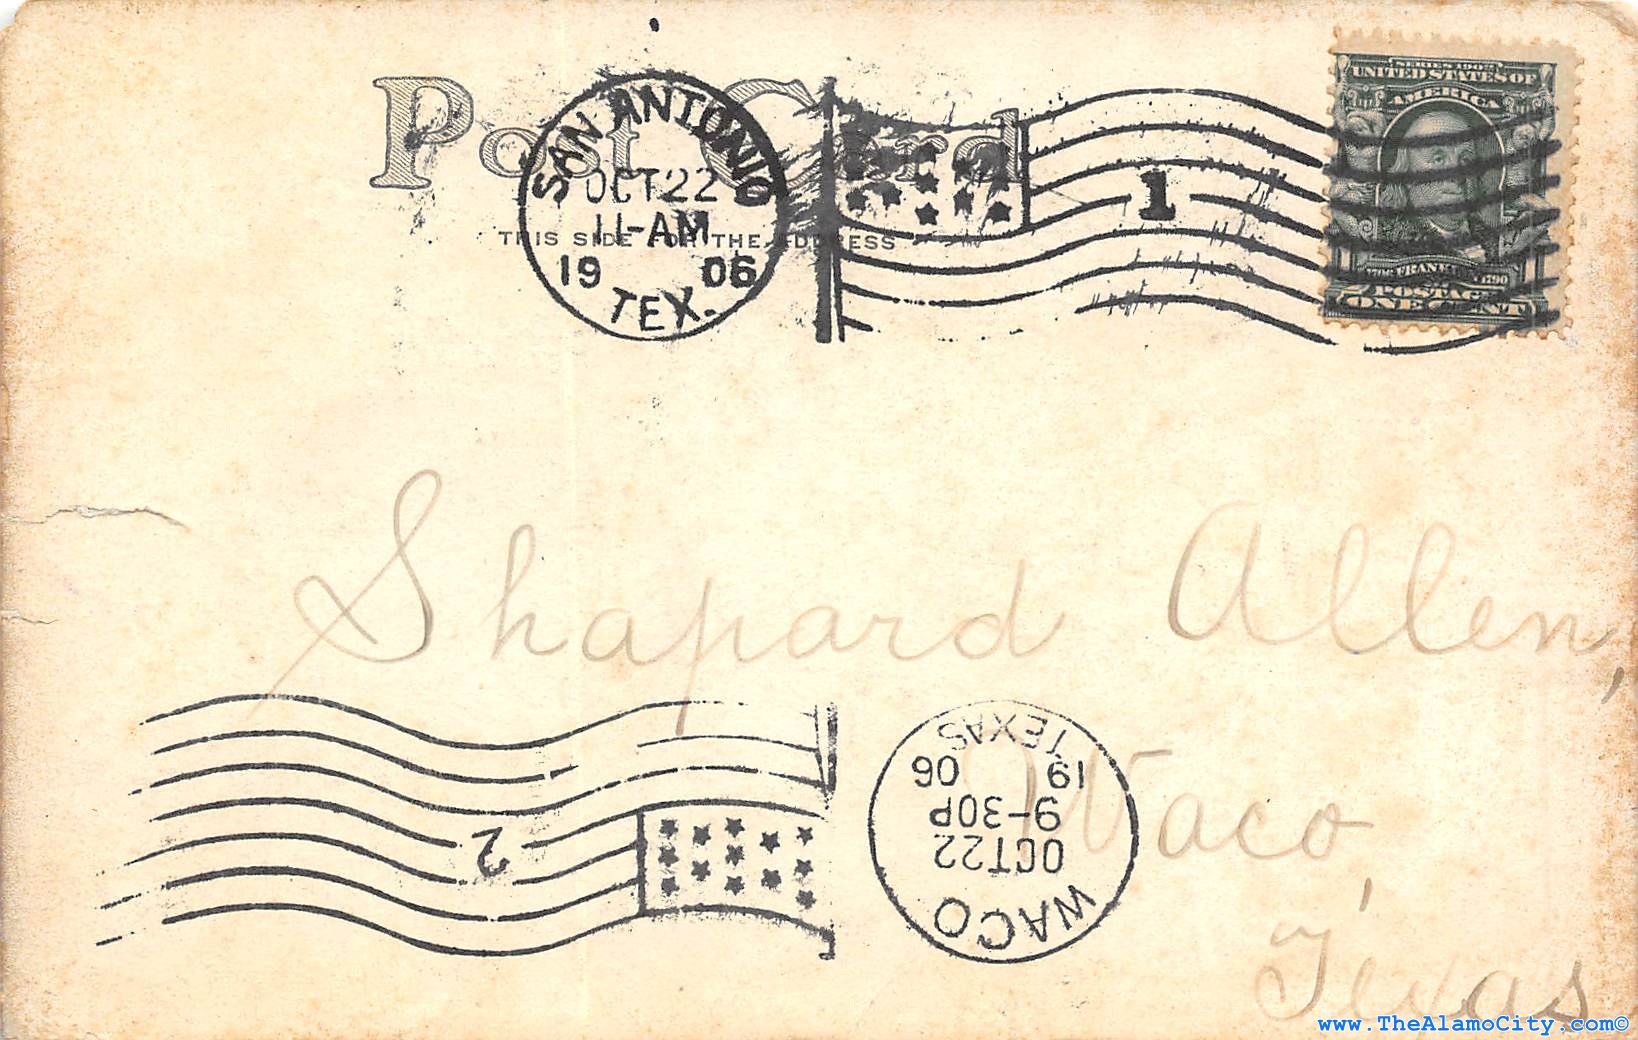 Post Card
THIS SIDE FOR THE ADDRESS
SAN ANTONIO
OCT 22
11-AM
19 06
TEX.
1
SERIES 1902
UNITED STATES OF
AMERICA
1706 FRANKLIN 1790
POSTAGE
ONE CENT
Shapard Allen,
Waco,
Texas
WACO
OCT 22
9-30P
19 06
TEXAS
2
www.TheAlamoCity.com©